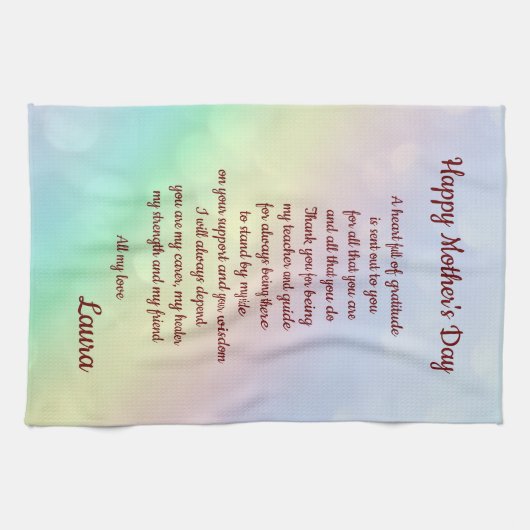 Happy Mother's Day
A heart full of gratitude
is sent out to you
for all that you are
and all that you do
Thank you for being
my teacher and guide
for always being there
to stand by my side
on your support and your wisdom
I will always depend
you are my carer, my healer
my strength and my friend
All my love
Laura